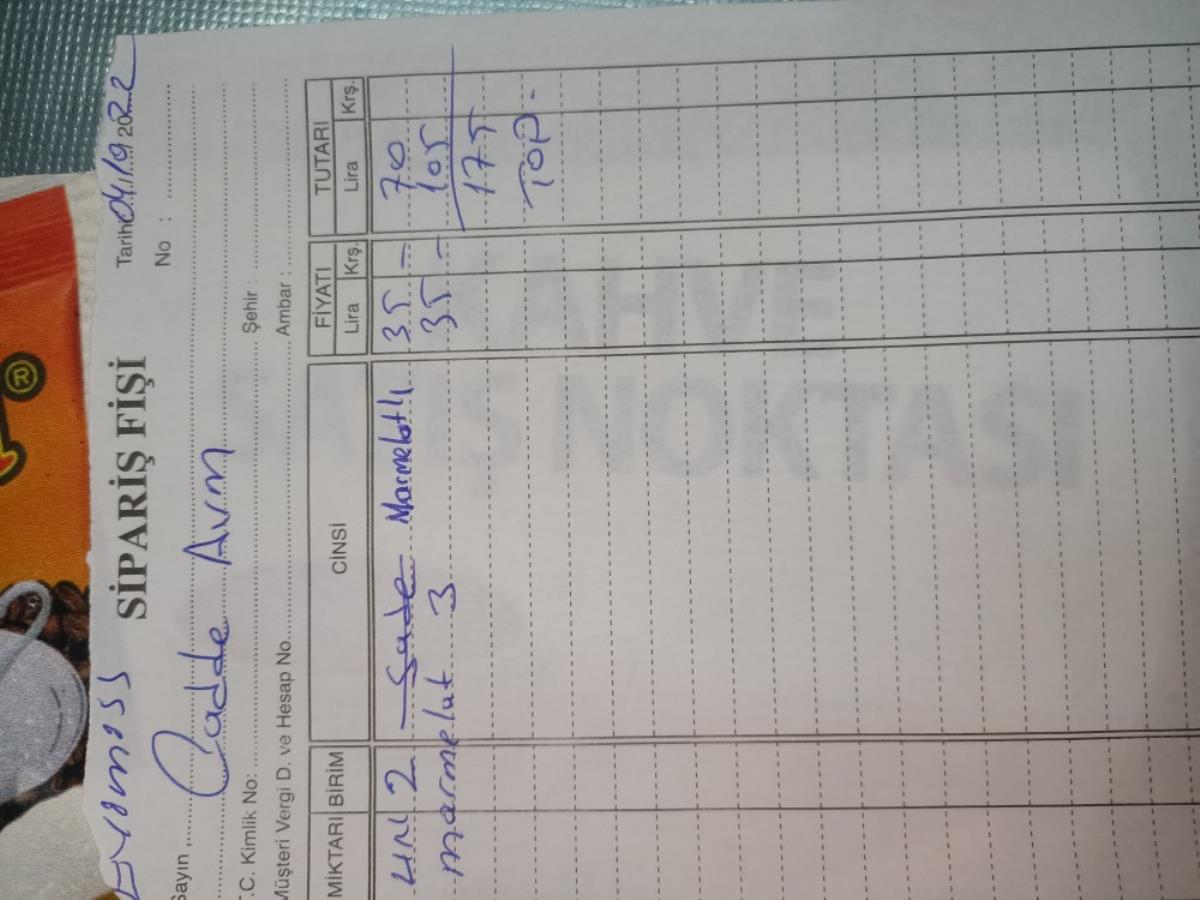 Evomoss
SİPARİŞ FİŞİ
Tarih 04/1912022
Sayın Cadde Avm
No :
T.C. Kimlik No: Şehir :
Müşteri Vergi D. ve Hesap No Ambar :
MİKTARI BİRİM CİNSİ FİYATI TUTARI
Lira Krş. Lira Krş.
2 Sade Marmelatlı 35 - 70
marmelat 3 35 - 105
175
TOP.
KAHVE
SATIŞ NOKTASI
®